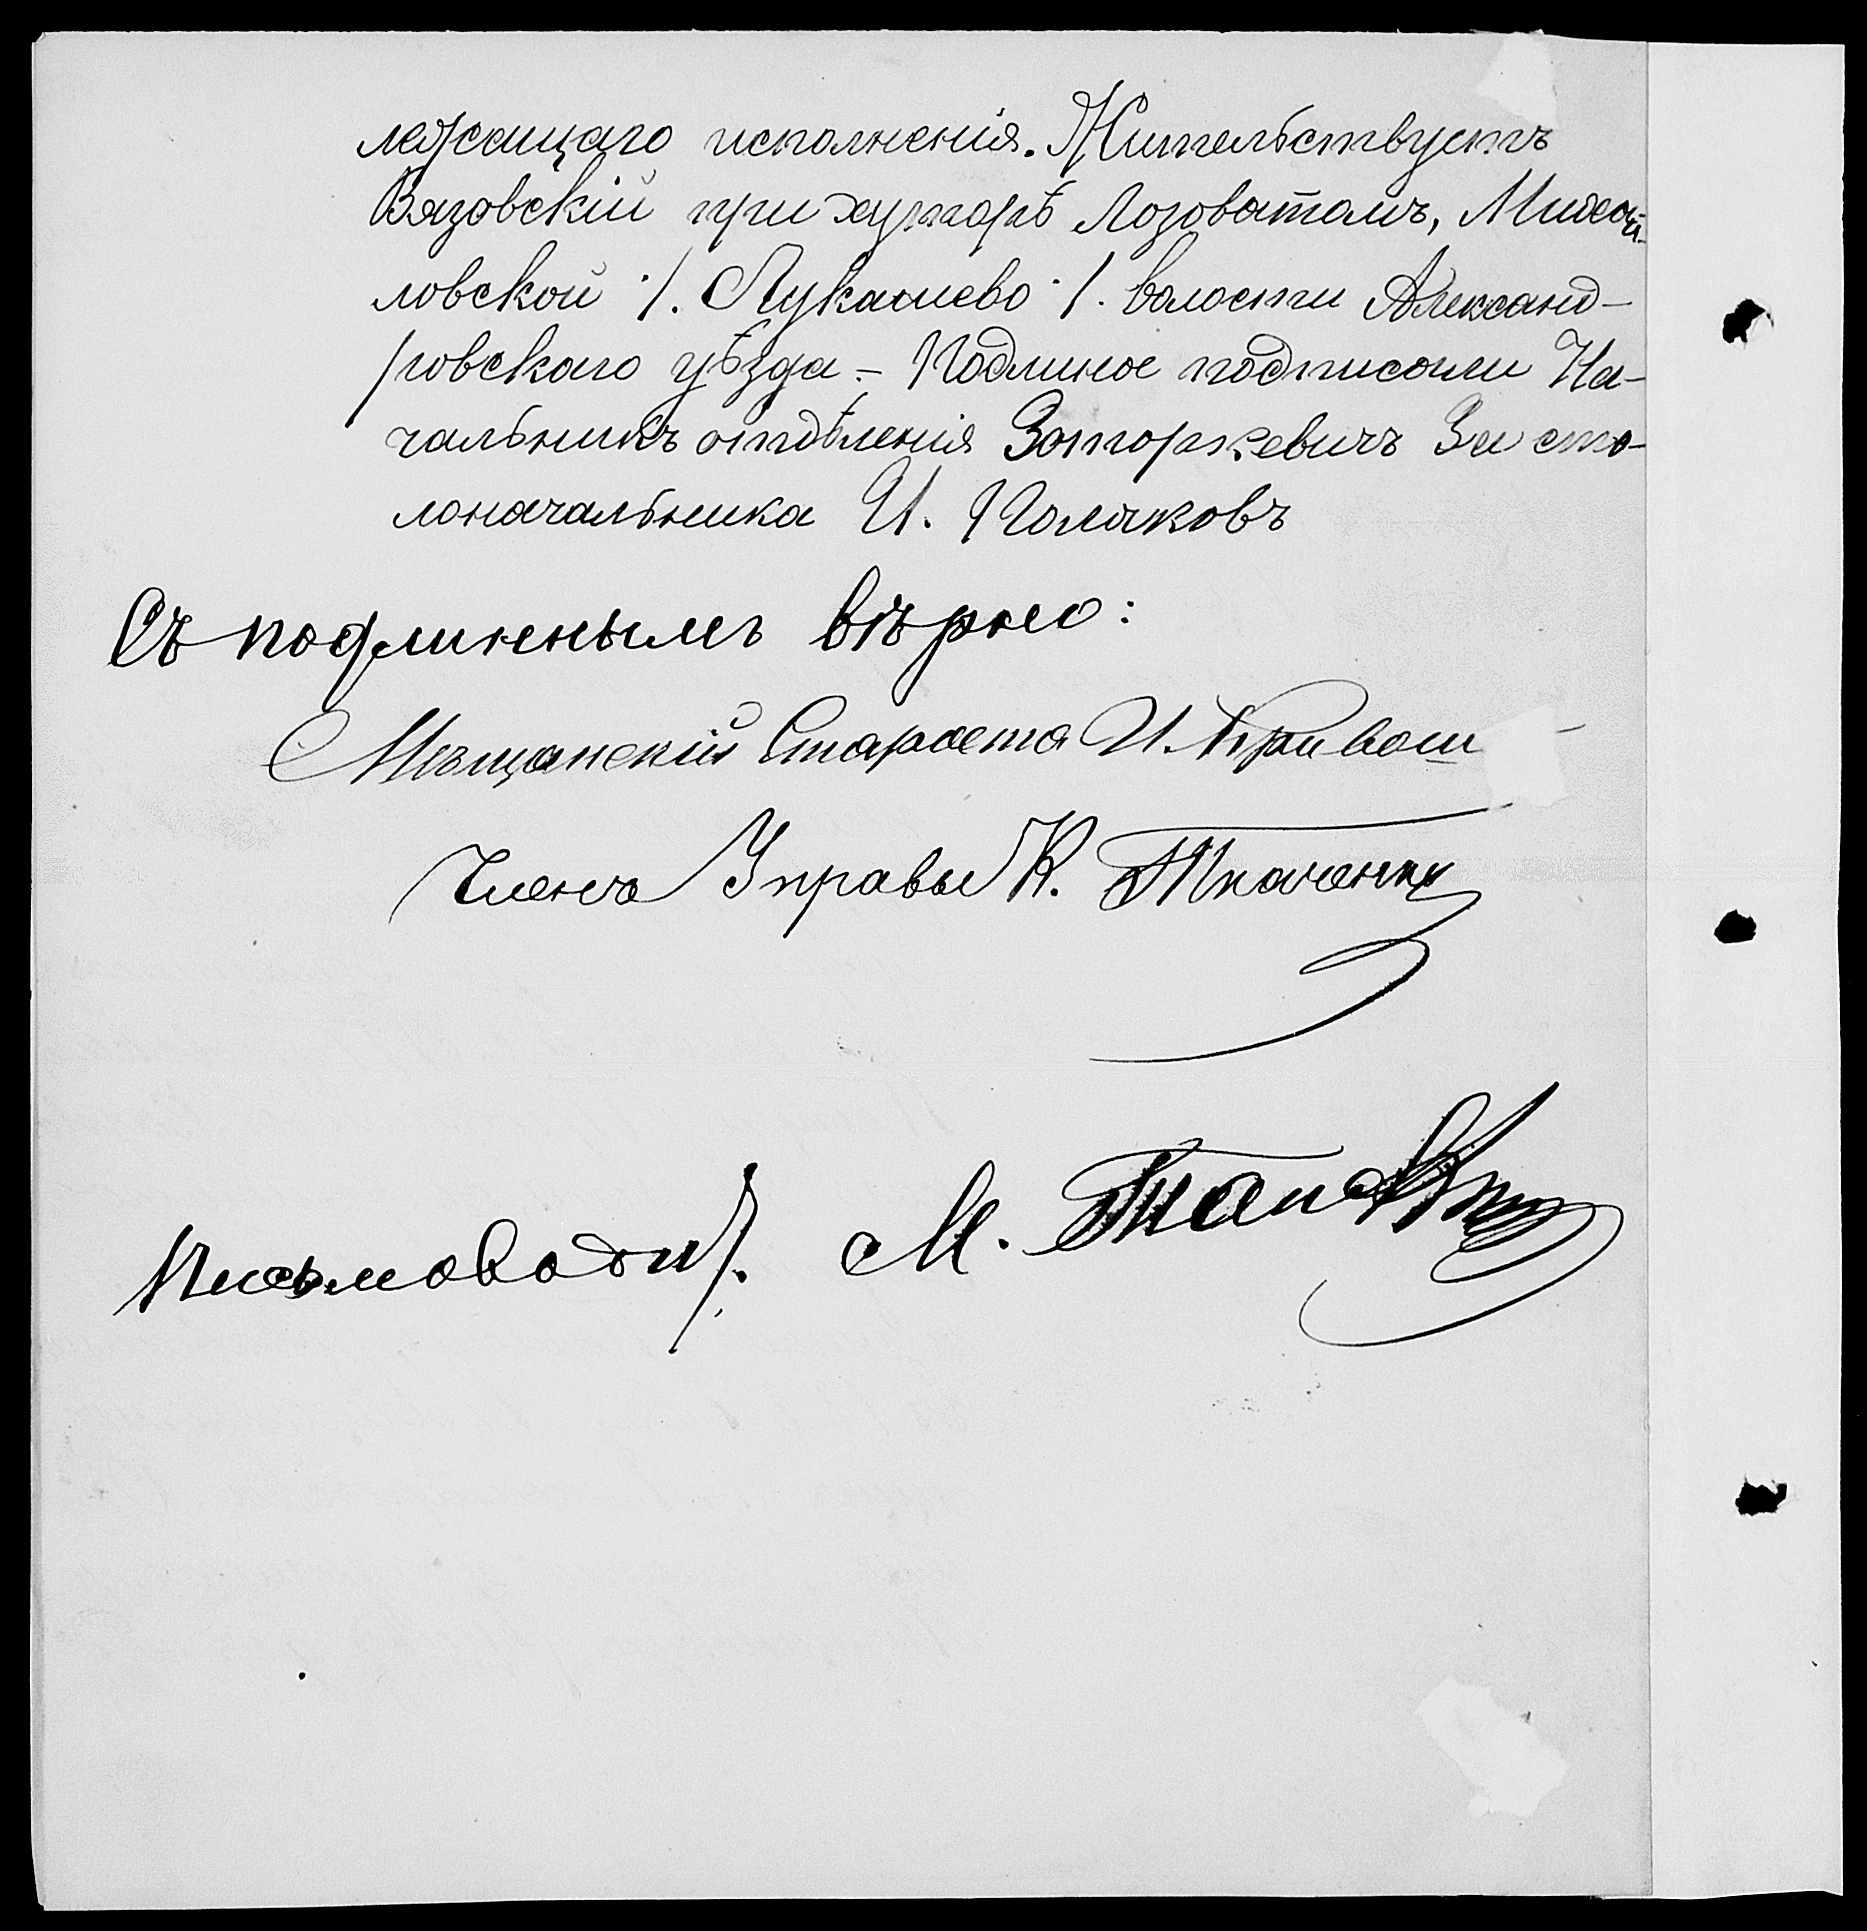 лежащаго исполненія. Жительствуетъ
Вязовскій при хуторѣ Лозоватомъ, Михай-
ловской ./. Лукашево ./. волости Александ-
ровскаго уѣзда. - Подлиное подписали На-
чальникъ отдѣленія Заторжевичъ За сто-
лоначальника И. Поляковъ
Съ подлиннымъ вѣрно:
Мѣщанскій Староста И. Кривош
Членъ Управы К. Ткаченко
Письмовод. М.